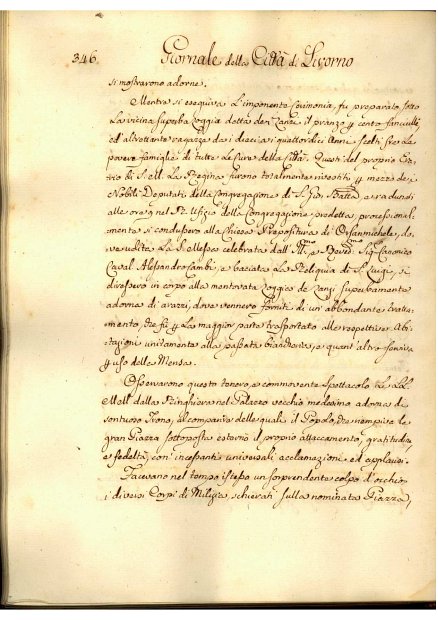 346. Giornale della Città di Livorno
si mostrarono adorne.
Mentre si eseguiva l'imponente Ceremonia, fu preparato sotto
la vicina superba Loggia detta dei Lanzi il pranzo p cento fanciulli,
ed altrettante ragazze dai dieci ai quattordici Anni scelti fra le
povere famiglie di tutte le Cure della Città. Questi del proprio
di S. M. La Regina furono totalmente rivestiti p mezzo dei
Nobili Deputati della Congregazione di S. Gio: Batta, e radunati
alle ore 9 nel R. Ufizio della Congregazione predetta, processional
mente si condussero alla Chiesa Prepositura di Orsanmichele, do
ve udita la S. Messa celebrata dall' Sig. Canonico
Caval. Alessandro e baciata la Reliquia di S. Luigi, si
diressero in corpo alla mentovata Loggia de Lanzi superbamente
adorna di arazzi, dove vennero forniti di un abbondante tratta
mento, che fu p la maggior parte trasportato alle respettive Abi
tazioni unitamente alla passata biancheria, e quant' altro serviva
p uso delle Mense.
Osservarono questo tenero, e commovente Spettacolo le LL.
MM. dalla Ringhiera nel Palazzo vecchio medesimo adorna di
sontuoso Trono, al comparire delle quali il Popolo, che riempiva la
gran Piazza sottoposta esternò il proprio attaccamento, gratitudine,
e fedeltà, con incessanti universali acclamazioni ed applausi.
Facevano nel tempo istesso un sorprendente colpo d'occhio
i diversi Corpi di Milizia, schierati sulla nominata Piazza,